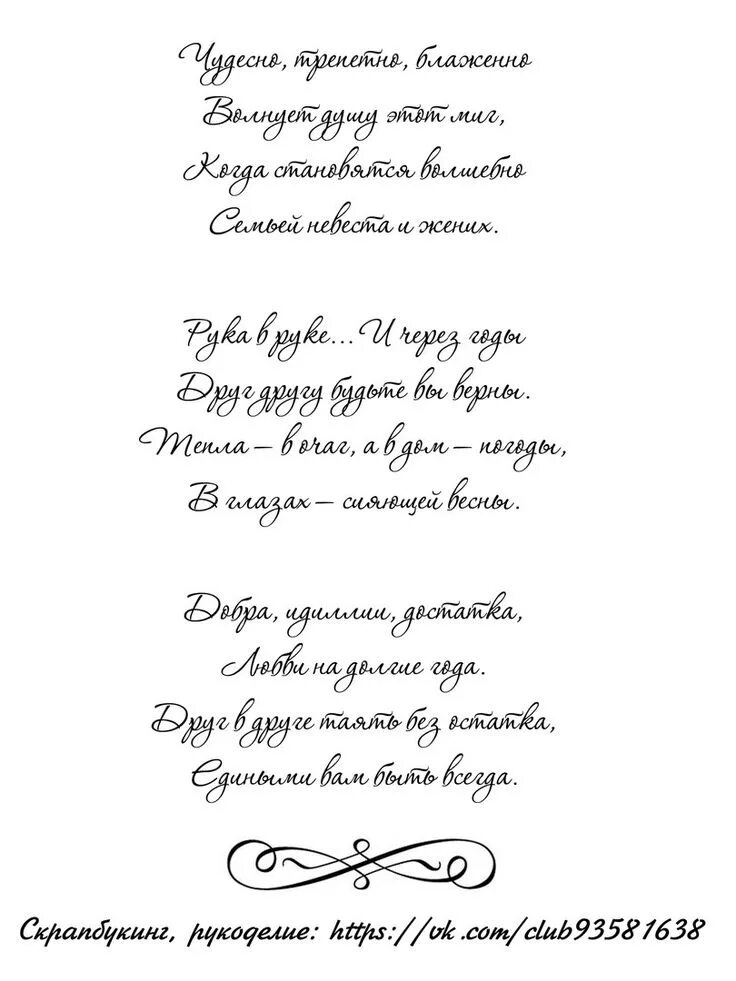 Чудесно, трепетно, блаженно
Волнует душу этот миг,
Когда становятся волшебно
Семьей невеста и жених.
Рука в руке... И через годы
Друг другу будьте вы верны.
Тепла – в очаг, а в дом – погоды,
В глазах – сияющей весны.
Добра, идиллии, достатка,
Любви на долгие года.
Друг в друге таять без остатка,
Едиными вам быть всегда.
Скрапбукинг, рукоделие: https://vk.com/club93581638